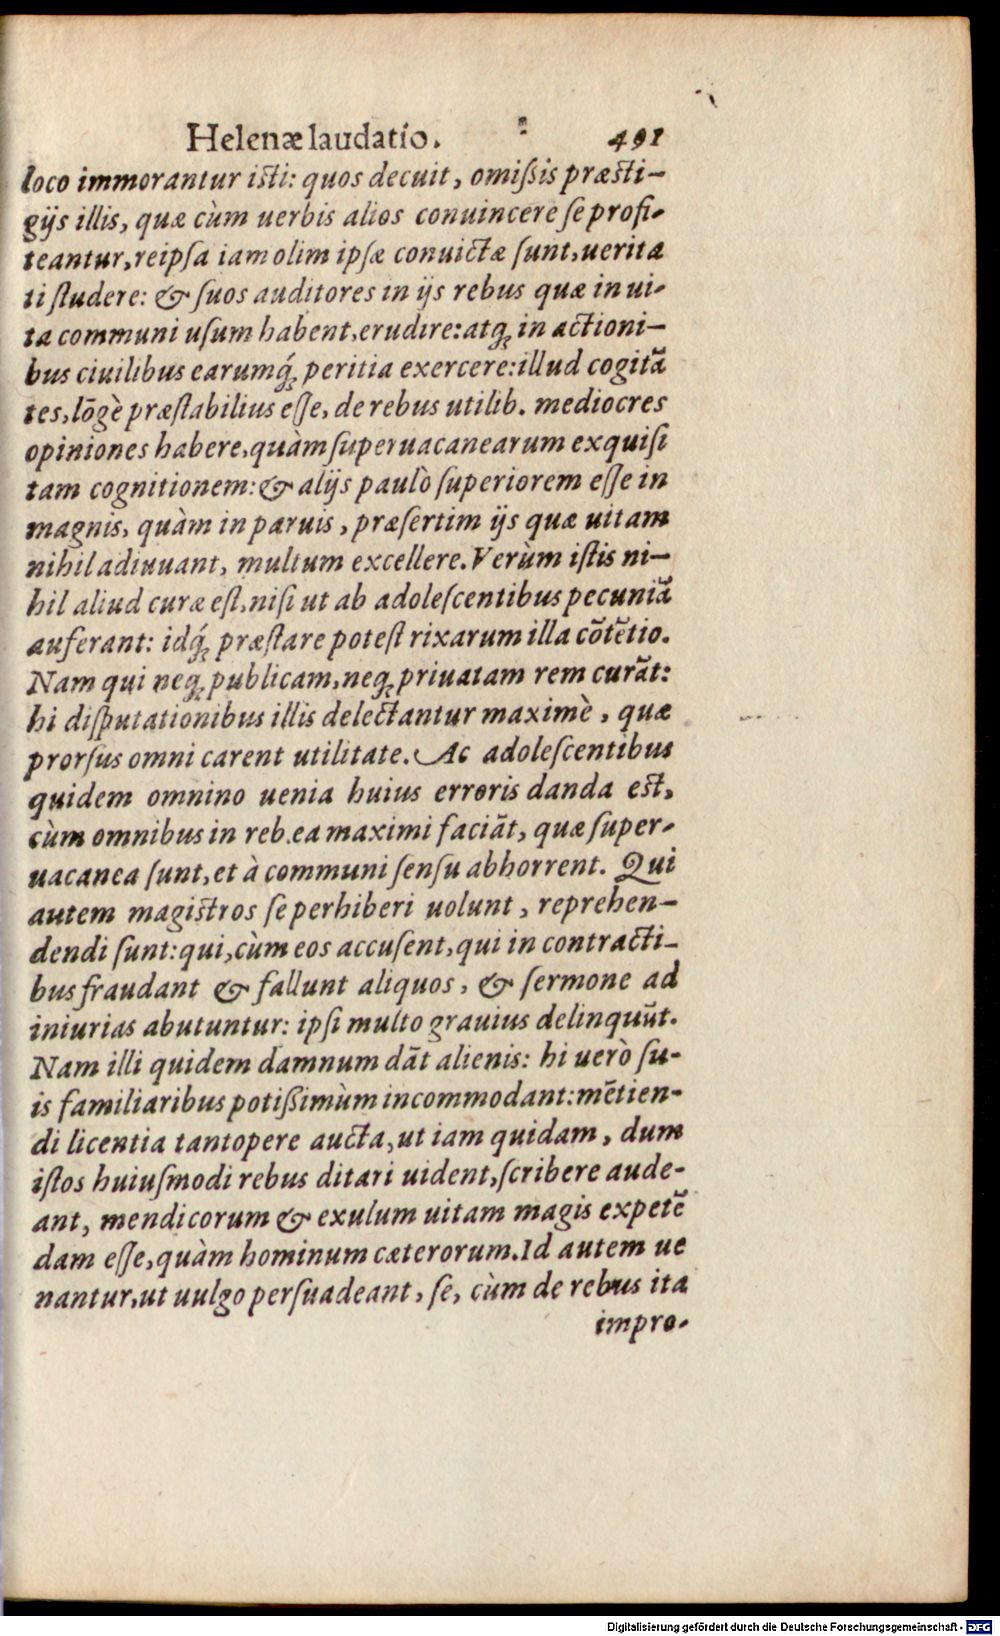 Helenæ laudatio. 491
loco immorantur isti: quos decuit, omißis præsti-
gijs illis, quæ cùm uerbis alios conuincere se profi-
teantur, reipsa iam olim ipsæ conuictæ sunt, uerita
ti studere: & suos auditores in ijs rebus quæ in ui-
ta communi usum habent, erudire: atq; in actioni-
bus ciuilibus earumq́; peritia exercere: illud cogitā
tes, lōgè præstabilius esse, de rebus utilib. mediocres
opiniones habere, quàm superuacanearum exquisi
tam cognitionem: & alijs paulò superiorem esse in
magnis, quàm in paruis, præsertim ijs quæ uitam
nihil adiuuant, multum excellere. Verùm istis ni-
hil aliud curæ est, nisi ut ab adolescentibus pecuniā
auferant: idq́; præstare potest rixarum illa cōtētio.
Nam qui neq; publicam, neq; priuatam rem curāt:
hi disputationibus illis delectantur maximè, quæ
prorsus omni carent utilitate. Ac adolescentibus
quidem omnino uenia huius erroris danda est,
cùm omnibus in reb. ea maximi faciāt, quæ super-
uacanea sunt, et à communi sensu abhorrent. Qui
autem magistros se perhiberi uolunt, reprehen-
dendi sunt: qui, cùm eos accusent, qui in contracti-
bus fraudant & fallunt aliquos, & sermone ad
iniurias abutuntur: ipsi multo grauius delinquūt.
Nam illi quidem damnum dāt alienis: hi uerò su-
is familiaribus potißimùm incommodant: mētien-
di licentia tantopere aucta, ut iam quidam, dum
istos huiusmodi rebus ditari uident, scribere aude-
ant, mendicorum & exulum uitam magis expetē
dam esse, quàm hominum cæterorum. Id autem ue
nantur, ut uulgo persuadeant, se, cùm de rebus ita
impro-
Digitalisierung gefördert durch die Deutsche Forschungsgemeinschaft - DFG